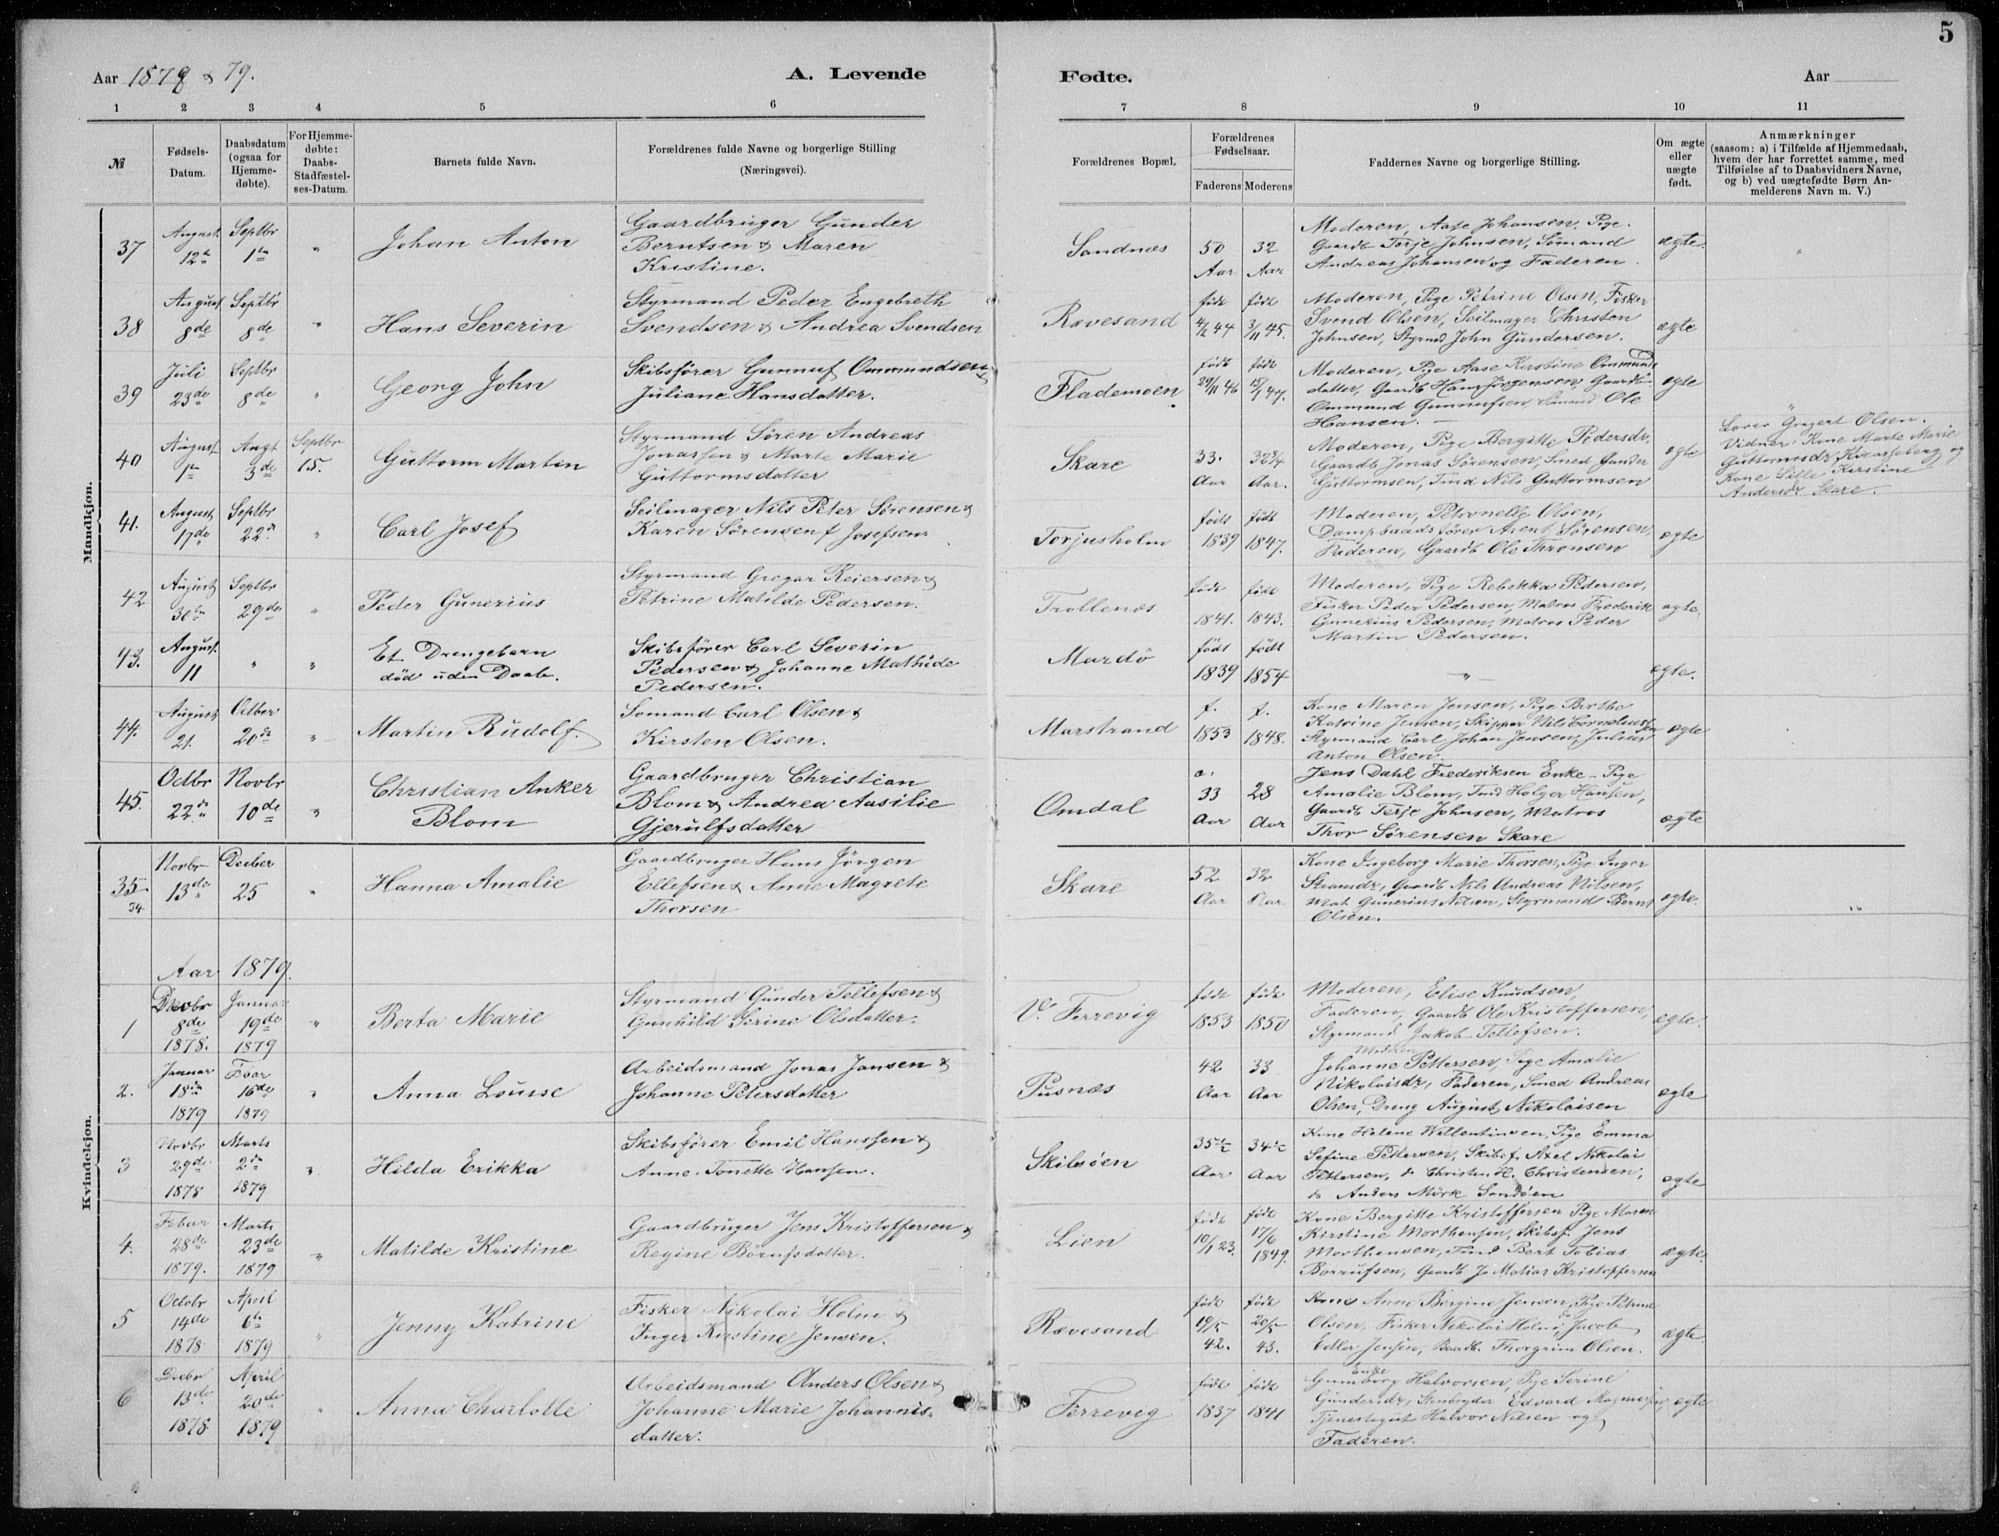 5
Aar 1878 & 79.
A. Levende Fødte.
Aar
1 2 3 4 5 6 7 8 9 10 11
№
Fødsels-Datum.
Daabsdatum (ogsaa for Hjemme-døbte).
For Hjemme-døbte: Daabs-Stadfæstel-ses-Datum.
Barnets fulde Navn.
Forældrenes fulde Navne og borgerlige Stilling (Næringsvei).
Forældrenes Bopæl.
Forældrenes Fødselsaar.
Faderens Moderens
Faddernes Navne og borgerlige Stilling.
Om ægte eller uægte født.
Anmærkninger (saasom: a) i Tilfælde af Hjemmedaab, hvem der har forrettet samme, med Tilføielse af to Daabsvidners Navne, og b) ved uægtefødte Børn Anmelderens Navn m. V.)
Mandkjøn.
37 August 12te Septbr 1te " Johan Anton
Gaardbruger Gunder
Berntsen & Maren
Kristine.
Sandnæs 50 Aar 32 Aar
Moderen, Aase Johansen, Pige.
Gaardb Terje Johnsen, Sømand
Andreas Johansen og Faderen
ægte.
38 August 8de Septbr 8de " Hans Severin
Styrmand Peder Engebreth
Svendsen & Andrea Svendsen
Rævesand født 4/2 44 født 3/11 45.
Moderen, Pige Petrine Olsen, Fisker
Svend Olsen, Seilmager Christen
Johnsen, Styrmd John Gundersen.
ægte
39 Juli 23de Septbr 8de " Georg John
Skibsfører Gunnuf Ommundsen &
Juliane Hansdatter.
Flademoen født 29/11 46 født 15/1 47.
Moderen, Pige Aase Kirstine Ommunds
datter, Gaardb Hans Jørgensen Gaardb
Ommund Gunnufsen Sømand Ole
Hansen.
ægte "
40 August 1te Augt 3de Septbr 15. Guttorm Martin
Styrmand Søren Andreas
Jonassen & Marte Marie
Guttormsdatter
Skare 33. Aar 32 3/4 Aar.
Moderen, Pige Bergitte Pedersdr,
Gaardb Jonas Sørensen, Smed Gunder
Guttormsen, Tmd Nils Guttormsen
ægte
Lærer Gregert Olsen.
Vidner: Kone Marte Marie
Guttormsdr Kvasseberg og
Kone Sille Kirstine
Andersdr Skare.
41. August 17de Septbr 22de " Carl Josef
Seilmager Nils Peter Sørensen &
Karen Sørensen f Josefsen
Torjusholm født 1839 født 1847.
Moderen, Petronelle Olsen,
Dampbaadsfører Arent Sørensen,
Faderen, Gaardb Ole Thronsen
ægte
42 August 30te Septbr 29de " Peder Gunerius
Styrmand Gregar Reiersen &
Petrine Matilde Pedersen.
Trollenæs født 1841. født 1843.
Moderen, Pige Rebekka Pedersen,
Fisker Peder Pedersen, Matros Frederik
Gunerius Pedersen, Matros Peder
Martin Pedersen.
ægte
43. August 11 " " Et Drengebarn
død uden Daab.
Skibsfører Carl Severin
Pedersen & Johanne Mathilde
Pedersen.
Mardö født 1839 født 1854 " ægte.
44. August 21. Octber 20de " Martin Rudolf.
Sømand Carl Olsen &
Kirsten Olsen.
Marstrand f. 1853 f. 1848.
Kone Maren Jensen, Pige Berthe
Katrine Jensen, Skipper Nils Corneliussen
Styrmand Carl Johan Jensen, Julius
Anton Olsen
ægte
45. Octbr 22de Novbr 10de " Christian Anker
Blom
Gaardbruger Christian
Blom & Andrea Aasilie
Gjerulfsdatter
Omdal 33 Aar 28 Aar
Jens Dahl Frederiksen Enke-Pige
Amalie Blom, Tmd Holger Hansen,
Gaardb Terje Johnsen, Matros
Thor Sørensen Skare
ægte
Kvindekjøn.
35 34 Novbr 13de Decber 25 " Hanna Amalie
Gaardbruger Hans Jörgen
Ellefsen & Anne Magrete
Thorsen
Skare 52 Aar 32 Aar
Kone Ingeborg Marie Thorsen, Pige Inger
Gaardb Nils Andreas Nilsen,
Mat Gunerius Nilsen, Styrmand Bernt
Olsen.
ægte. "
Aar 1879.
1 Decbr 8de 1878. Januar 19de 1879 " Berta Marie
Styrmand Gunder Tellefsen &
Gunhild Serine Olsdatter.
V. Færrevig født 1853 født 1850
Moderen, Elise Knudsen,
Faderen, Gaardb Ole Kristoffersen,
Styrmand Jakob Tellefsen.
ægte.
2. Januar 18de 1879 Febar 16de 1879 " Anna Louise
Arbeidsmand Jonas Jansen &
Johanne Petersdatter
Pusnæs 42 Aar 33 Aar
Moderen
Johanne Pettersen, Pige Amalie
Nikolaisdr, Faderen, Smed Andreas
Olsen, Dreng August Nikolaisen
ægte
3 Novbr 29de 1878 Marts 2de 1879 " Hilda Erikka
Skibsfører Emil Hanssen &
Anne Tonette Hansen.
Skilsøen 35 1/2 Aar 34 1/2 Aar
Kone Helene Wallentinsen, Pige Emma
Sefine Pettersen, Skibsf. Axel Nikolai
Pettersen, do Christen H. Christensen,
do Anders Mörk Sandöen
ægte
4. Febar 28de 1879. Marts 23de 1879 " Matilde Kristine
Gaardbruger Jens Kristoffersen &
Regine Börufsdatter.
Lien født 10/1 23. født 17/6 1849.
Kone Bergitte Kristoffersen Pige Maren
Kirstine Morthensen, Skibsf. Jens
Morthensen, Tmd Bert Tobias
Börrufsen, Gaardb Jo Matias Kristoffersen
ægte.
5 Octobr 14de 1878 April 6te 1879 " Jenny Katrine
Fisker Nikolai Holm &
Inger Kirstine Jensen.
Rævesand født 19/5 42. født 20/5 43.
Kone Anne Bergine Jensen, Pige Petrine
Olsen, Fisker Nikolai Holm, do Jacob
Edler Jensen, Baadb. Thorgrim Olsen.
ægte
6 Decbr 13de 1878. April 20de 1879 " Anna Charlotte
Arbeidsmand Anders Olsen &
Johanne Marie Johannis-
datter.
Færrevig født 1837 født 1841
Enke
Gunborg Halvorsen, Pige Serine
Gundersdr, Stenbryder Edvard Magnesen,
Tjenestegut Halvor Nilsen og
Faderen.
ægte